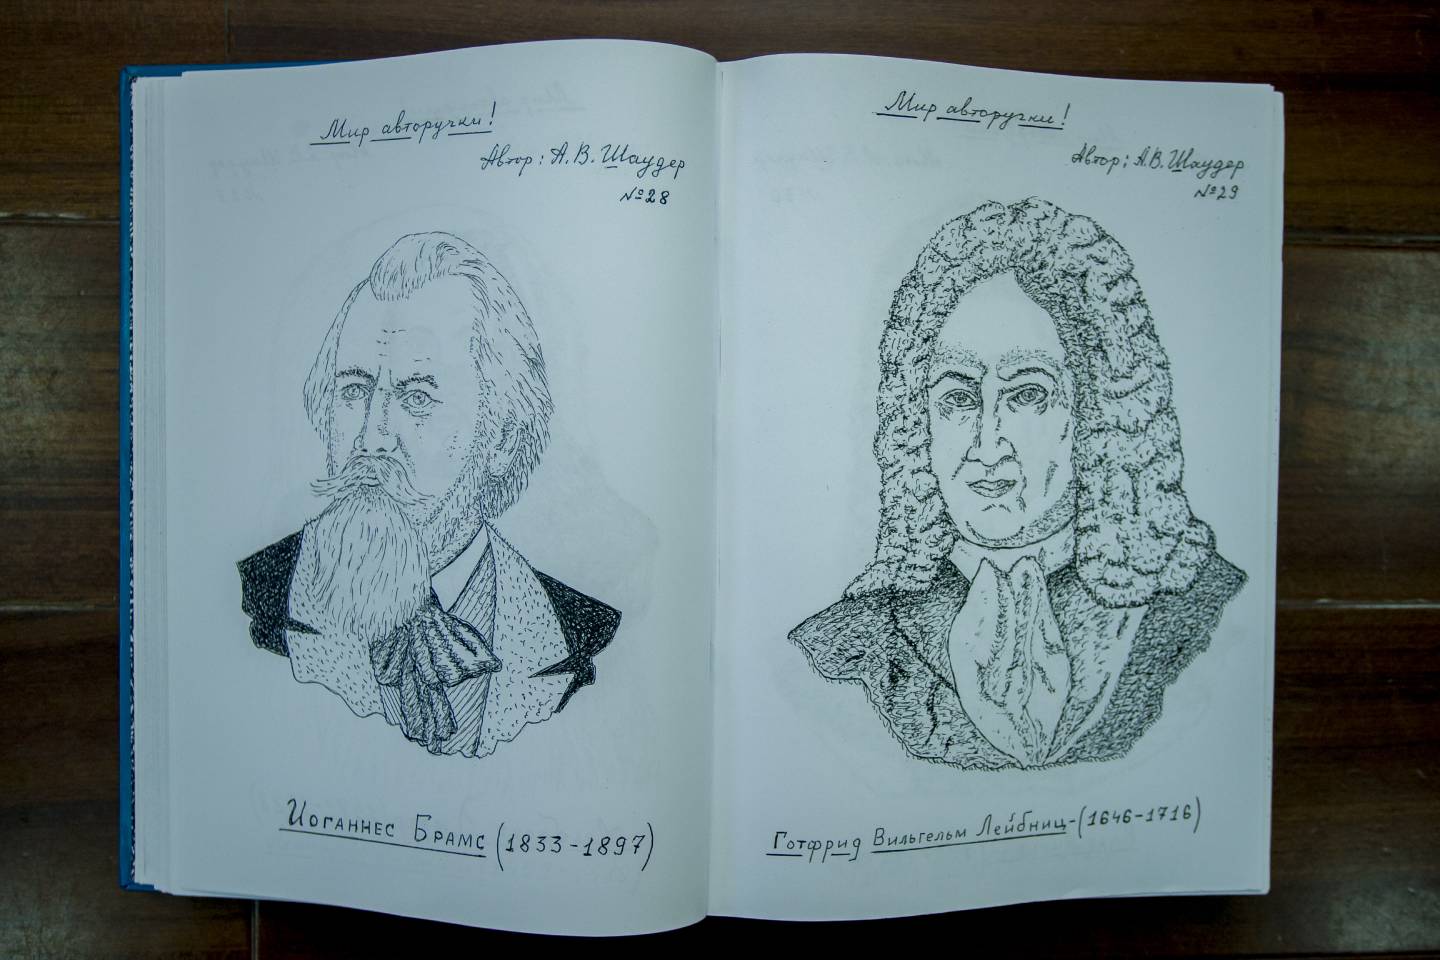 Мир авторучки!
Автор: А.В. Шаудер
№28
Иоганнес Брамс (1833-1897)
Мир авторучки!
Автор: А.В. Шаудер
№29
Готфрид Вильгельм Лейбниц-(1646-1716)